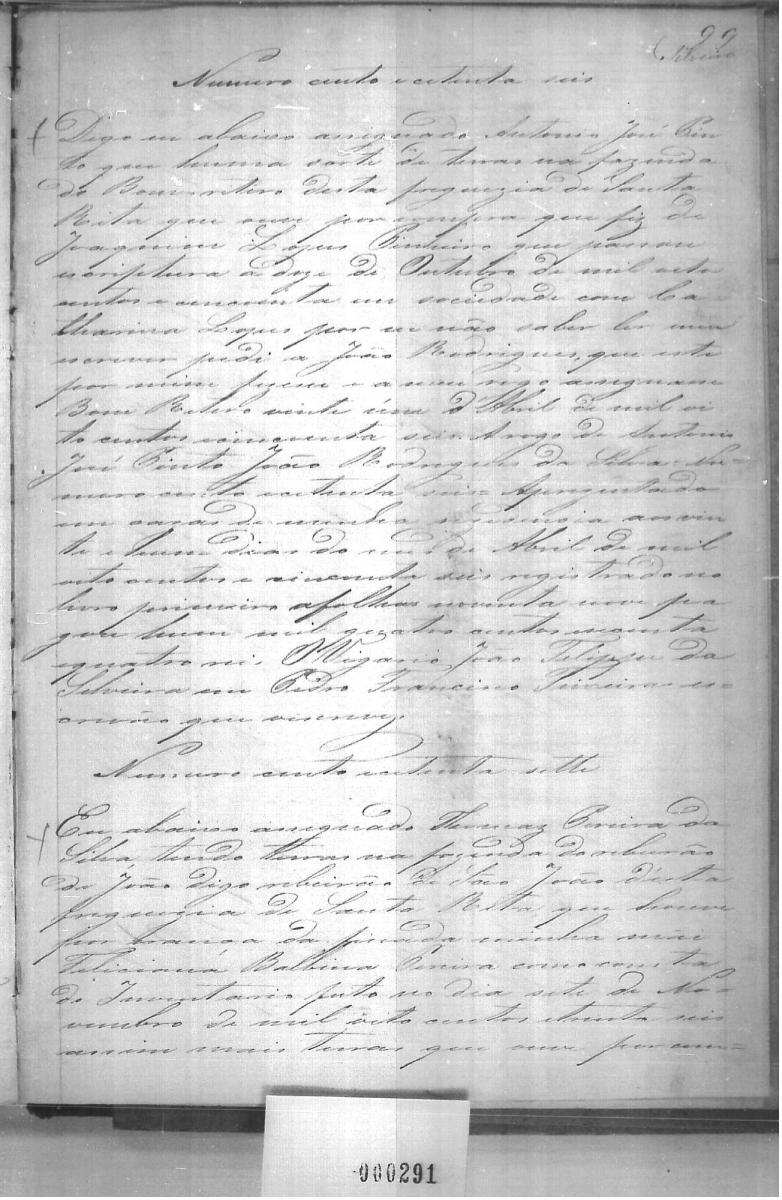 99
Silveira
Numero cento e cetenta seis
Digo eu abaixo assegnado Antonio José Pin
to que huma sorte de terras na fazenda
do Bom retiro desta freguezia de Santa
Rita que ouve por compra que fiz de
Joaquim Lopes Pinheiro que passou
escriptura a doze de Outubro de mil oito
centos e cincoenta em sociedade com Ca
tharina Lopes por eu não saber ler nem
escrever pedi a João Rodrigues, que este
por mim fizesse e a meu rogo assignasse
Bom Retiro vinte úm d'Abril de mil oi
to centos cincoenta seis. Arogo de Antonio
José Pinto João Rodrigues da Silva = Nu=
mero cento ecetenta seis = Aprezentado
em cazas de minha rezidencia aos vin
te e hum dias do mes de Abril de mil
oito centos e cincoenta seis registrado no
livro primeiro afolhas noventa nove pa
gou hum mil quatro centos
equatro reis O Vigario João Felippe da
Silveira eu Pedro Francino Teixeira es=
crivão que oescrevy.
Numero cento ecetenta sette
Eu abaixo assegnado Thomaz Pereira da
Silva, tendo terras na fazenda do reberão
de João digo ribeirão de São João d'esta
freguezia de Santa Rita, que houve
por erança da finada minha mãi
Feliciana Balbina Pereira como consta
do Inventario feito no dia sete de No=
vembro de mil oito centos etrinta seis
assim mais terras que ouve por com=
000291